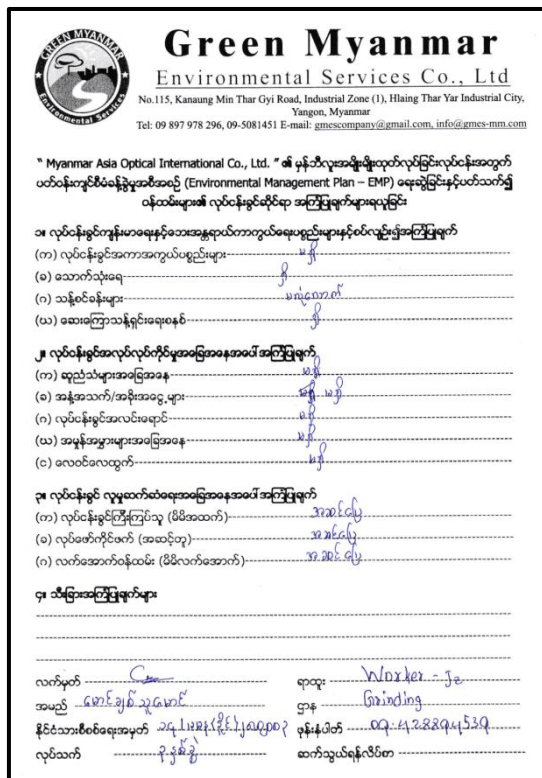 GREEN MYANMAR
Environmental Services
Green Myanmar
Environmental Services Co., Ltd
No.115, Kanaung Min Thar Gyi Road, Industrial Zone (1), Hlaing Thar Yar Industrial City,
Yangon, Myanmar
Tel: 09 897 978 296, 09-5081451 E-mail: gmescompany@gmail.com, info@gmes-mm.com
" Myanmar Asia Optical International Co., Ltd. " ၏ မှန်ဘီလူးအမျိုးမျိုးထုတ်လုပ်ခြင်းလုပ်ငန်းအတွက်
ပတ်ဝန်းကျင်စီမံခန့်ခွဲမှုအစီအစဉ် (Environmental Management Plan – EMP) ရေးဆွဲခြင်းနှင့်ပတ်သက်၍
ဝန်ထမ်းများ၏ လုပ်ငန်းခွင်ဆိုင်ရာ အကြံပြုချက်များရယူခြင်း
၁။ လုပ်ငန်းခွင်ကျန်းမာရေးနှင့်ဘေးအန္တရာယ်ကာကွယ်ရေးပစ္စည်းများနှင့်စပ်လျဉ်း၍အကြံပြုချက်
(က) လုပ်ငန်းခွင်အကာအကွယ်ပစ္စည်းများ မရှိ
(ခ) သောက်သုံးရေ ရှိ
(ဂ) သန့်စင်ခန်းများ မလုံလောက်
(ဃ) ဆေးကြောသန့်ရှင်းရေးစနစ် ရှိ
၂။ လုပ်ငန်းခွင်အလုပ်လုပ်ကိုင်မှုအခြေအနေအပေါ် အကြံပြုချက်
(က) ဆူညံသံများအခြေအနေ မရှိ
(ခ) အနံ့အသက်/အခိုးအငွေ့များ မရှိ
(ဂ) လုပ်ငန်းခွင်အလင်းရောင် မရှိ
(ဃ) အမှုန်အမွှားများအခြေအနေ မရှိ
(င) လေဝင်လေထွက် မရှိ
၃။ လုပ်ငန်းခွင် လူမှုဆက်ဆံရေးအခြေအနေအပေါ် အကြံပြုချက်
(က) လုပ်ငန်းခွင်ကြီးကြပ်သူ (မိမိအထက်) အဆင်ပြေ
(ခ) လုပ်ဖော်ကိုင်ဖက် (အဆင့်တူ) အဆင်ပြေ
(ဂ) လက်အောက်ဝန်ထမ်း (မိမိလက်အောက်) အဆင်ပြေ
၄။ သီးခြားအကြံပြုချက်များ
လက်မှတ် ရာထူး Worker - J2
အမည် မောင်ချစ်သူမောင် ဌာန Grinding
နိုင်ငံသားစိစစ်ရေးအမှတ် ဖုန်းနံပါတ်
လုပ်သက် ၃ နှစ်ခွဲ ဆက်သွယ်ရန်လိပ်စာ